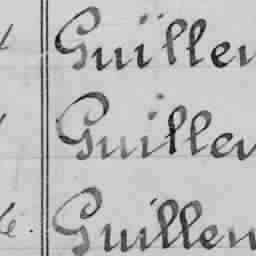 Guillen
Guillen
Guillen